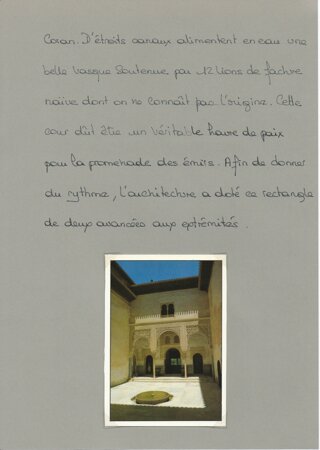 Coran. D'étroits canaux alimentent en eau une
belle vasque soutenue par 12 lions de facture
naïve dont on ne connaît pas l'origine. Cette
cour dût être un véritable havre de paix
pour la promenade des émirs. Afin de donner
du rythme, l'architecture a doté ce rectangle
de deux avancées aux extrêmités.